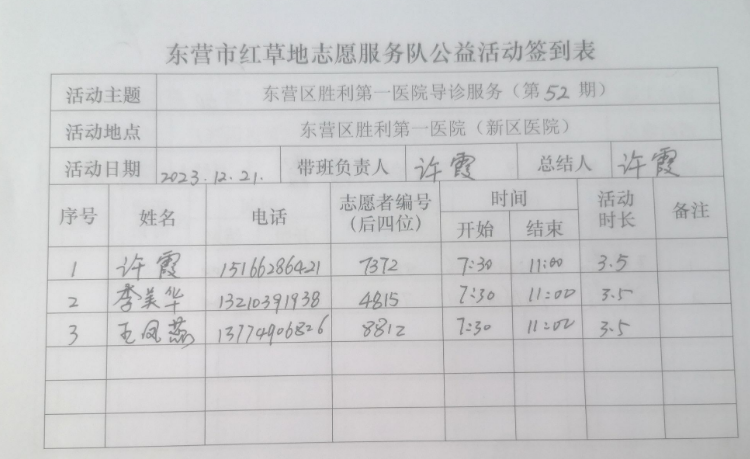 东营市红草地志愿服务队公益活动签到表
活动主题 东营区胜利第一医院导诊服务（第52期）
活动地点 东营区胜利第一医院（新区医院）
活动日期 2023.12.21. 带班负责人 许霞 总结人 许霞
序号 姓名 电话 志愿者编号（后四位） 时间 开始 结束 活动时长 备注
1 许霞 15166286421 7372 7:30 11:00 3.5
2 李美华 13210391938 4815 7:30 11:00 3.5
3 王凤燕 13774906826 8812 7:30 11:00 3.5